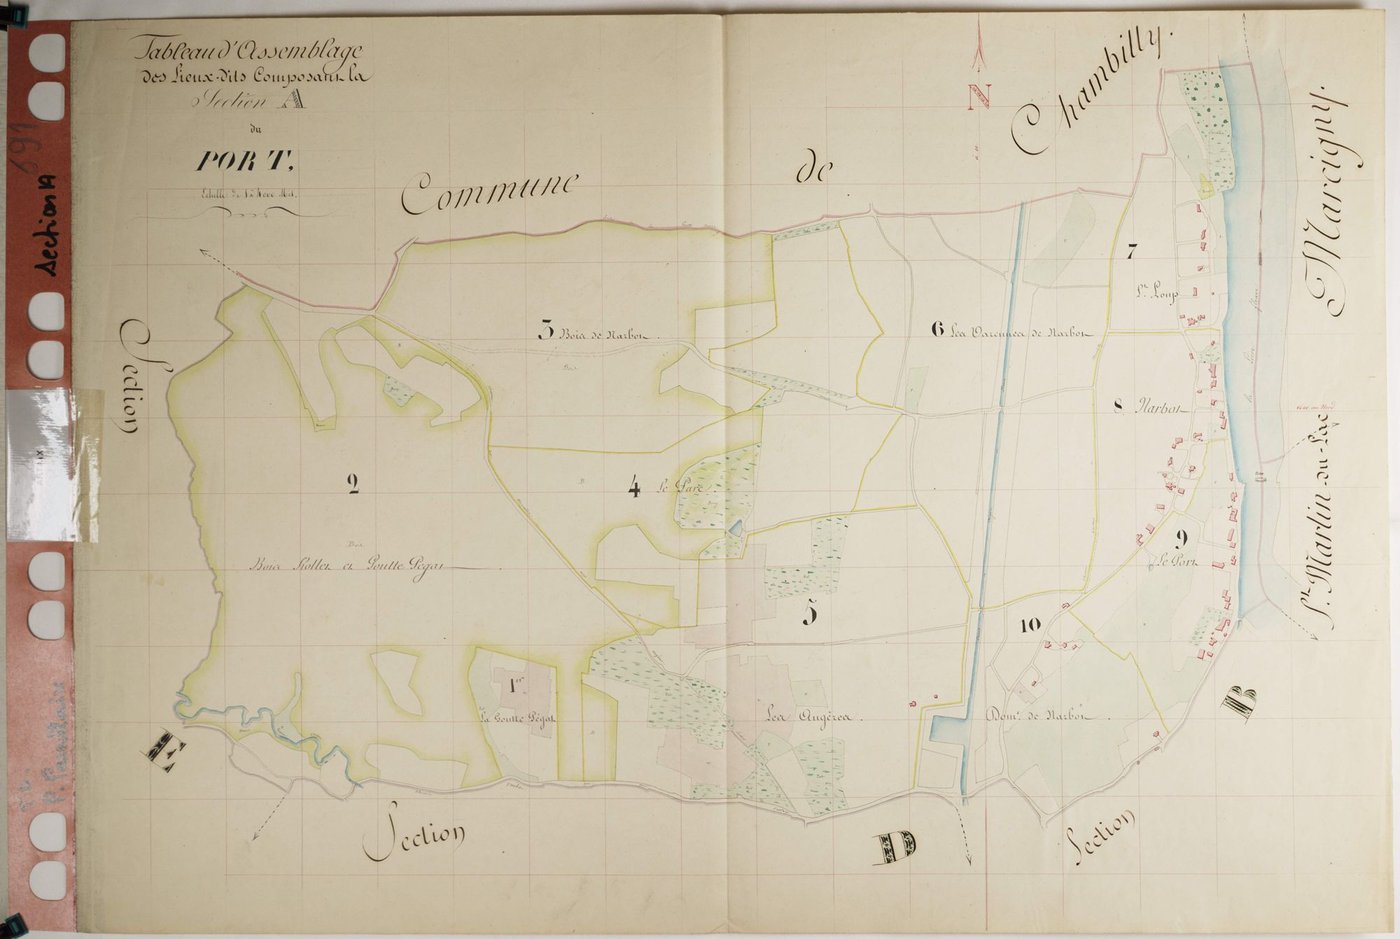 Tableau d'Assemblage
des Lieux-dits Composant la
Section A
du
PORT,
Commune de Chambilly.
Marcigny.
St. Martin-du-Lac
Section E
Section D
Section B
N
1er
La Goutte Pégat
2
Bois
Bois Rollet et Goutte Pégat
3 Bois de Narbot
Bois
4 Le Parc
5
Les Augères
6 Les Varennes de Narbot
7
St. Loup
8 Narbot
9
Le Port
10
Dome. de Narbot
Section A
691